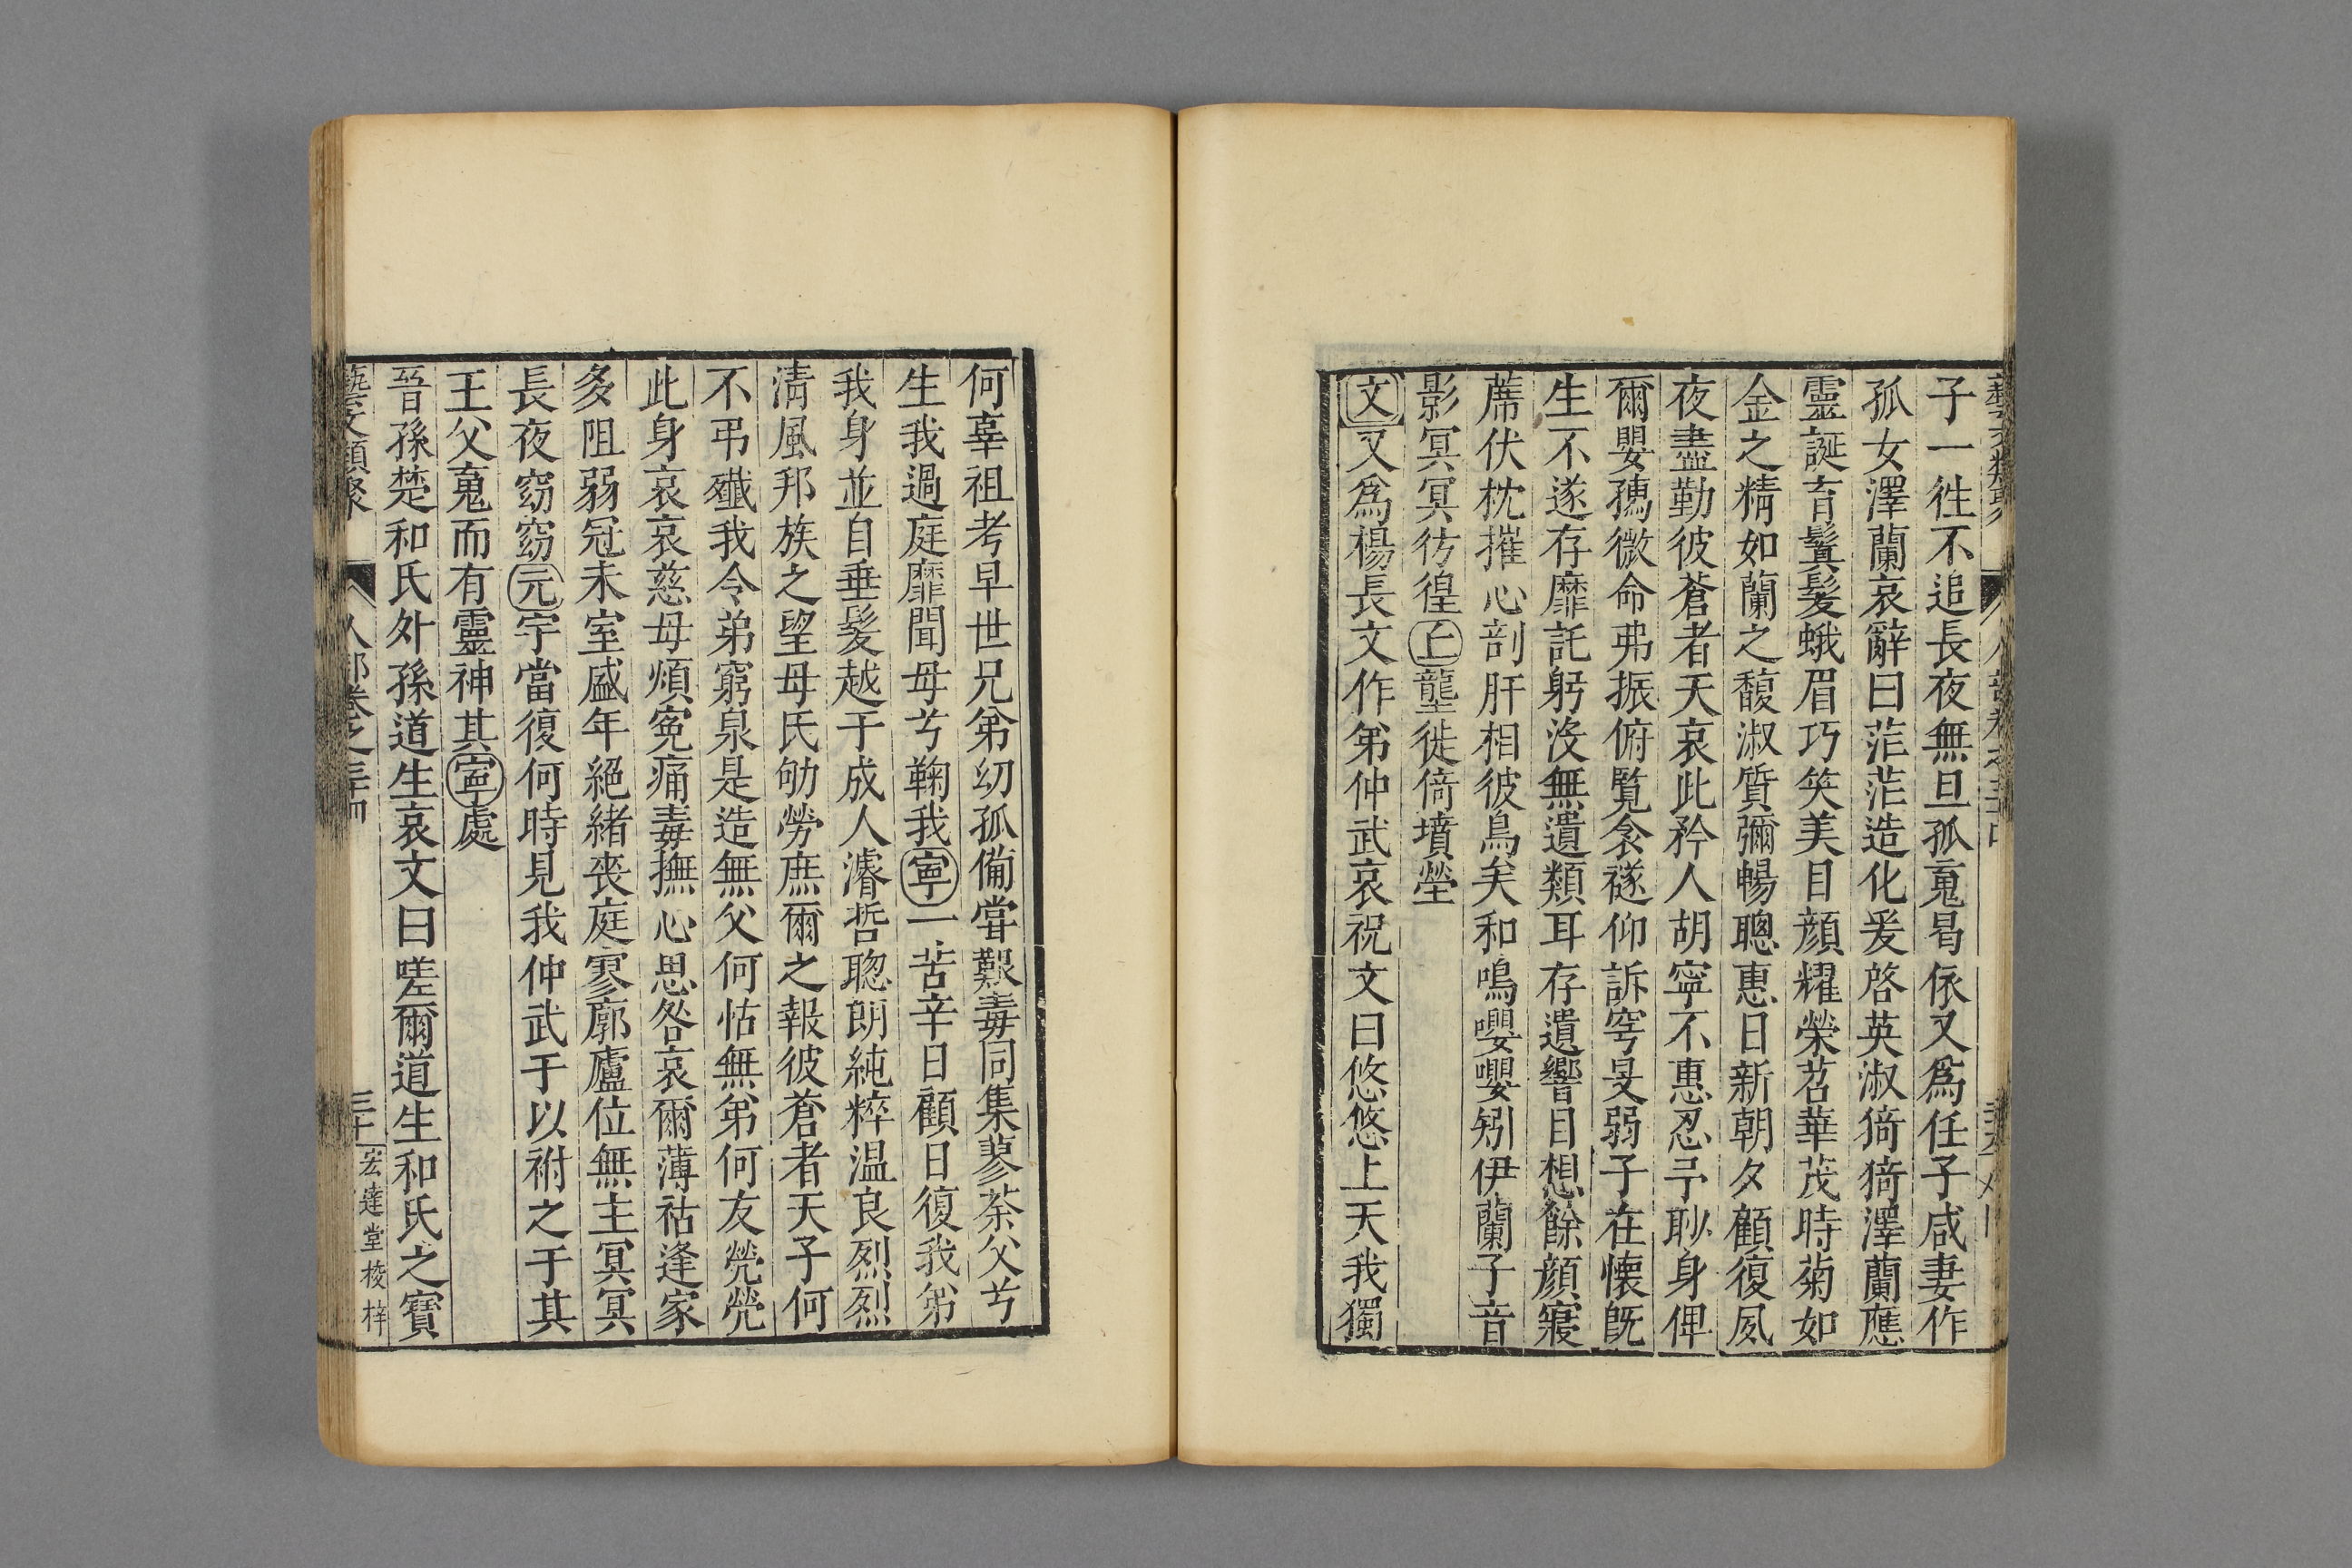 子一徃不追長夜無旦孤䰟曷依又爲任子咸妻作
孤女澤蘭哀辭曰茫茫造化爰啓英淑猗猗澤蘭應
靈誕育鬒髮蛾眉巧笑美目顔耀榮苕華茂時菊如
金之精如蘭之馥淑質彌暢聰惠日新朝夕顧復夙
夜盡勤彼蒼者天哀此矜人胡寧不惠忍予眇身俾
爾嬰孺微命弗振俯覽衾襚仰訴穹旻弱子在懐旣
生不遂存靡託躬沒無遺類耳存遺響目想餘顔寢
蓆伏枕摧心剖肝相彼鳥矣和鳴嚶嚶矧伊蘭子音
影冥冥彷徨丘壠徙倚墳塋
文又爲楊長文作弟仲武哀祝文曰悠悠上天我獨
何辜祖考早世兄弟幼孤備嘗艱毒同集蓼荼父兮
生我過庭靡聞母兮鞠我寧一苦辛日顧日復我弟
我身並自垂髮越于成人濬哲聦朗純粹温良烈烈
淸風邦族之望母氏劬勞庶爾之報彼蒼者天子何
不弔殲我令弟窮泉是造無父何怙無弟何友煢煢
此身哀哀慈母煩寃痛毒撫心思咎哀爾薄祜逢家
多阻弱冠未室盛年絕緒喪庭寥廓廬位無主冥冥
長夜窈窈元宇當復何時見我仲武于以祔之于其
王父䰟而有靈神其寧處
晉孫楚和氏外孫道生哀文曰嗟爾道生和氏之寶
藝文類聚 人部卷之三十四 三十 宏達堂校梓